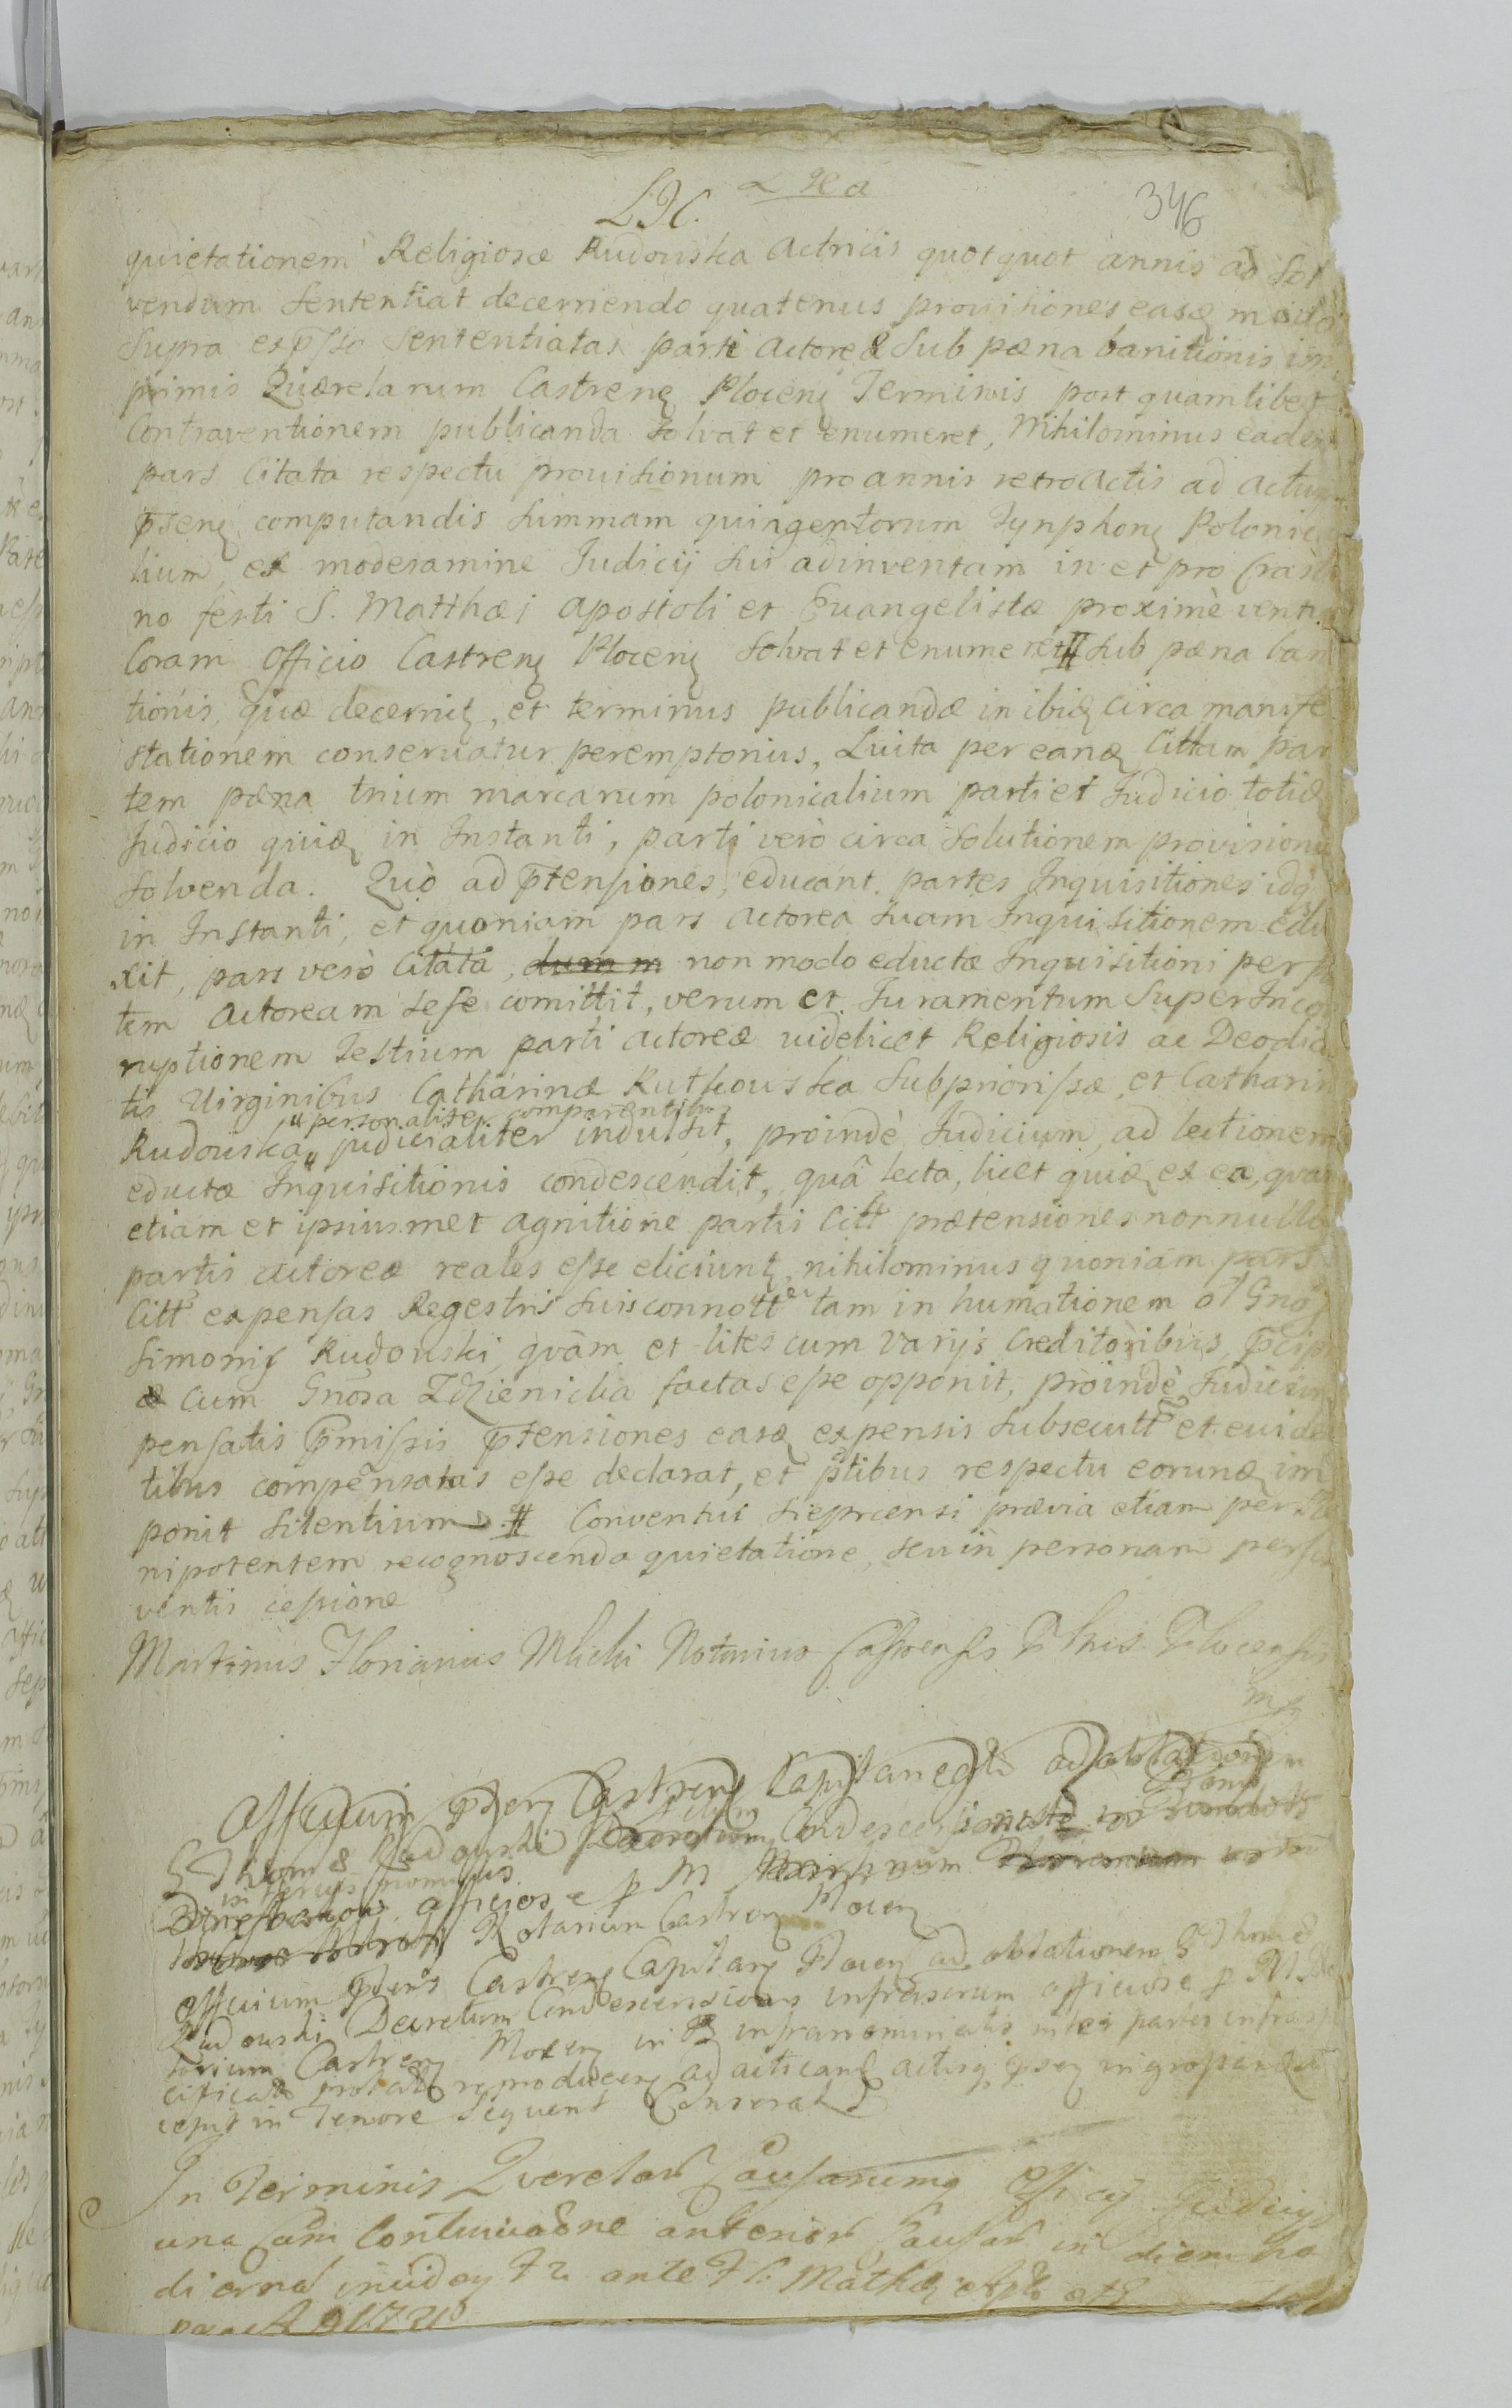 346
quietationem Religiosæ Rudowska Actricis quotquot annis ad Sol
vendum Sententiat decernendo quatenus provisiones easq modo
Supra exp̃sso Sententiatas parti Actoreæ Sub pæna banitionis im
primis Quærelarum Castrenę Plocenę Terminis post quamlibet
Contraventionem publicanda Solvat et enumeret, Nihilominus eadem
pars Citata respectu provisionum pro annis retroactis ad actum
p̃senę computandis Summam quingentorum Tynphonę Polonica
lium, ex moderamine Judicij Sui adinventam in et pro Crasti
no festi S. Matthæi Apostoli et Evangelistæ proximè ventu
Coram Officio Castrenę Plocenę Solvat et enumeret Sub pæna bani
tionis, quæ decernitę, et terminus publicandæ in ibiq circa manife
stationem conservatur peremptorius, Luita per eanq Cittam par
tem pæna trium marcarum polonicalium parti et Judicio totiq
Judicio quiq in Instanti, parti verò circa Solutionem provisionū
Solvenda. Quò ad p̃tensiones, educant partes Inquisitiones idq
in Instanti, et quoniam pars Actorea Suam Inquisitionem edu
xit, pars verò Citata, non modo eductæ Inquisitioni per par
tem Actoream sese comittit, verum et Juramentum Super Incor
ruptionem Testium parti Actoreæ videlicet Religiosis ac Deodica
tis Virginibus Catharinæ Rutkowska Subpriorissæ, et Catharinæ
personaliter comparentibus
Rudowska judicialiter indulsit, proindè Judicium, ad lectionem
eductæ Inquisitionis condescendit, quâ lecta, licet quiq ex ea, quam
etiam et ipsiusmet agnitione partis Citt prætensiones nonnullæ
partis Actoreæ reales esse eliciuntę, nihilominus quoniam pars
Citt expensas Regestris Suis connott tam in humationem ol Gnosi
Simonis Rudowski, quàm et lites cum varijs Creditoribus, p̃cipu
æ cum Gnosa Zdzienicka factas esse opponit, proindè Judicium
pensatis p̃missis p̃tensiones easq expensis Subsecutt et eviden
tibus compensatas esse declarat, et p̃tibus respectu eorunq im
ponit Silentium Conventui Sieprcensi prævia etiam per Ple
nipotentem recognoscenda quietatione, seu in personam persol
ventis cessione
Martinus Florianus Mlicki Notarius Castrensis Plocensis
mp
Officium p̃senę Castrenę Capitan ad oblationem
Rudowski Decretum Condescensionis
in officiose p M
Notarium Castrenę Plocenę
Officium p̃sens Castrenę Capitanę Plocenę ad oblationem G Thomæ
Rudowski Decretum Condescensionis infrascrum officiose p M No
tarium Castrenę Plocenę in infranominatis inter partes infraspe
cificatas prolatę reproducenę ad acticandę actisq p̃senę ingrossandū
cepit in Tenore Sequenti Conserat
In Terminis Querelarū Causarumq Officij Judicij
una cum Continuaõne anteriorū Causarū in diem ho
diernā incidenę ante F S. Mathæi Apli